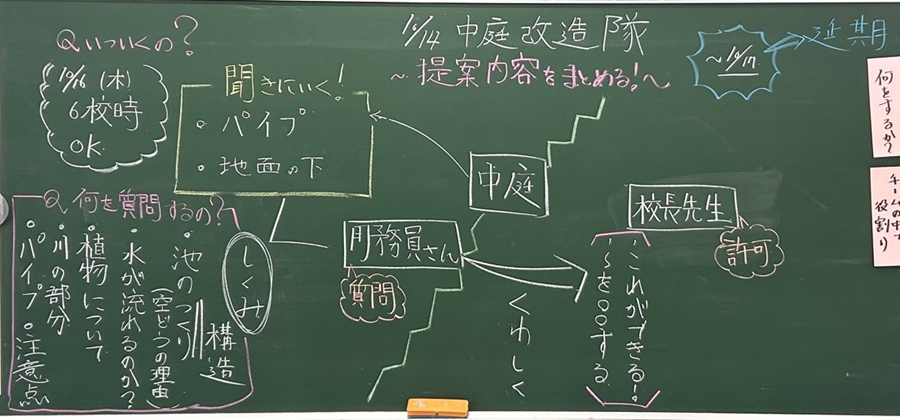 10/14 中庭改造隊
~提案内容をまとめる!~
~10/17
延期
Qいついくの?
10/16 (木)
6校時
OK
聞きにいく!
・パイプ
・地面の下
中庭
用務員さん
質問
校長先生
許可
・これができる!
・~を○○する
くわしく
Q 何を質問するの?
しくみ
・池のつくり
構造
(空どうの理由)
・水が流れるのか?
・植物について
・川の部分
・パイプ・注意点
何をするか?
チームの中で
役割り